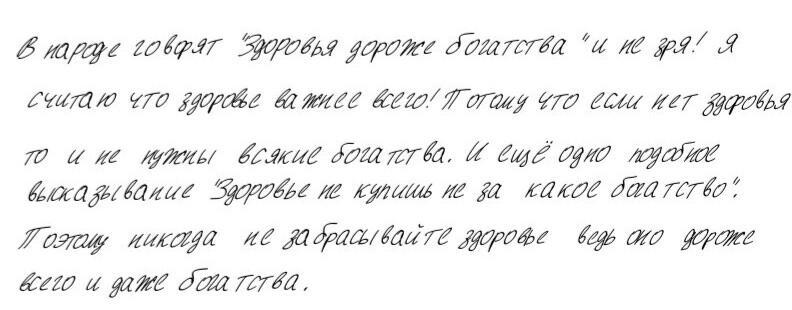 В народе говорят "Здоровья дороже богатства" и не зря! Я
считаю что здоровье важнее всего! Потому что если нет здоровья
то и не нужны всякие богатства. И ещё одно подобное
высказывание "Здоровье не купишь не за какое богатство".
Поэтому никогда не забрасывайте здоровье ведь оно дороже
всего и даже богатства.